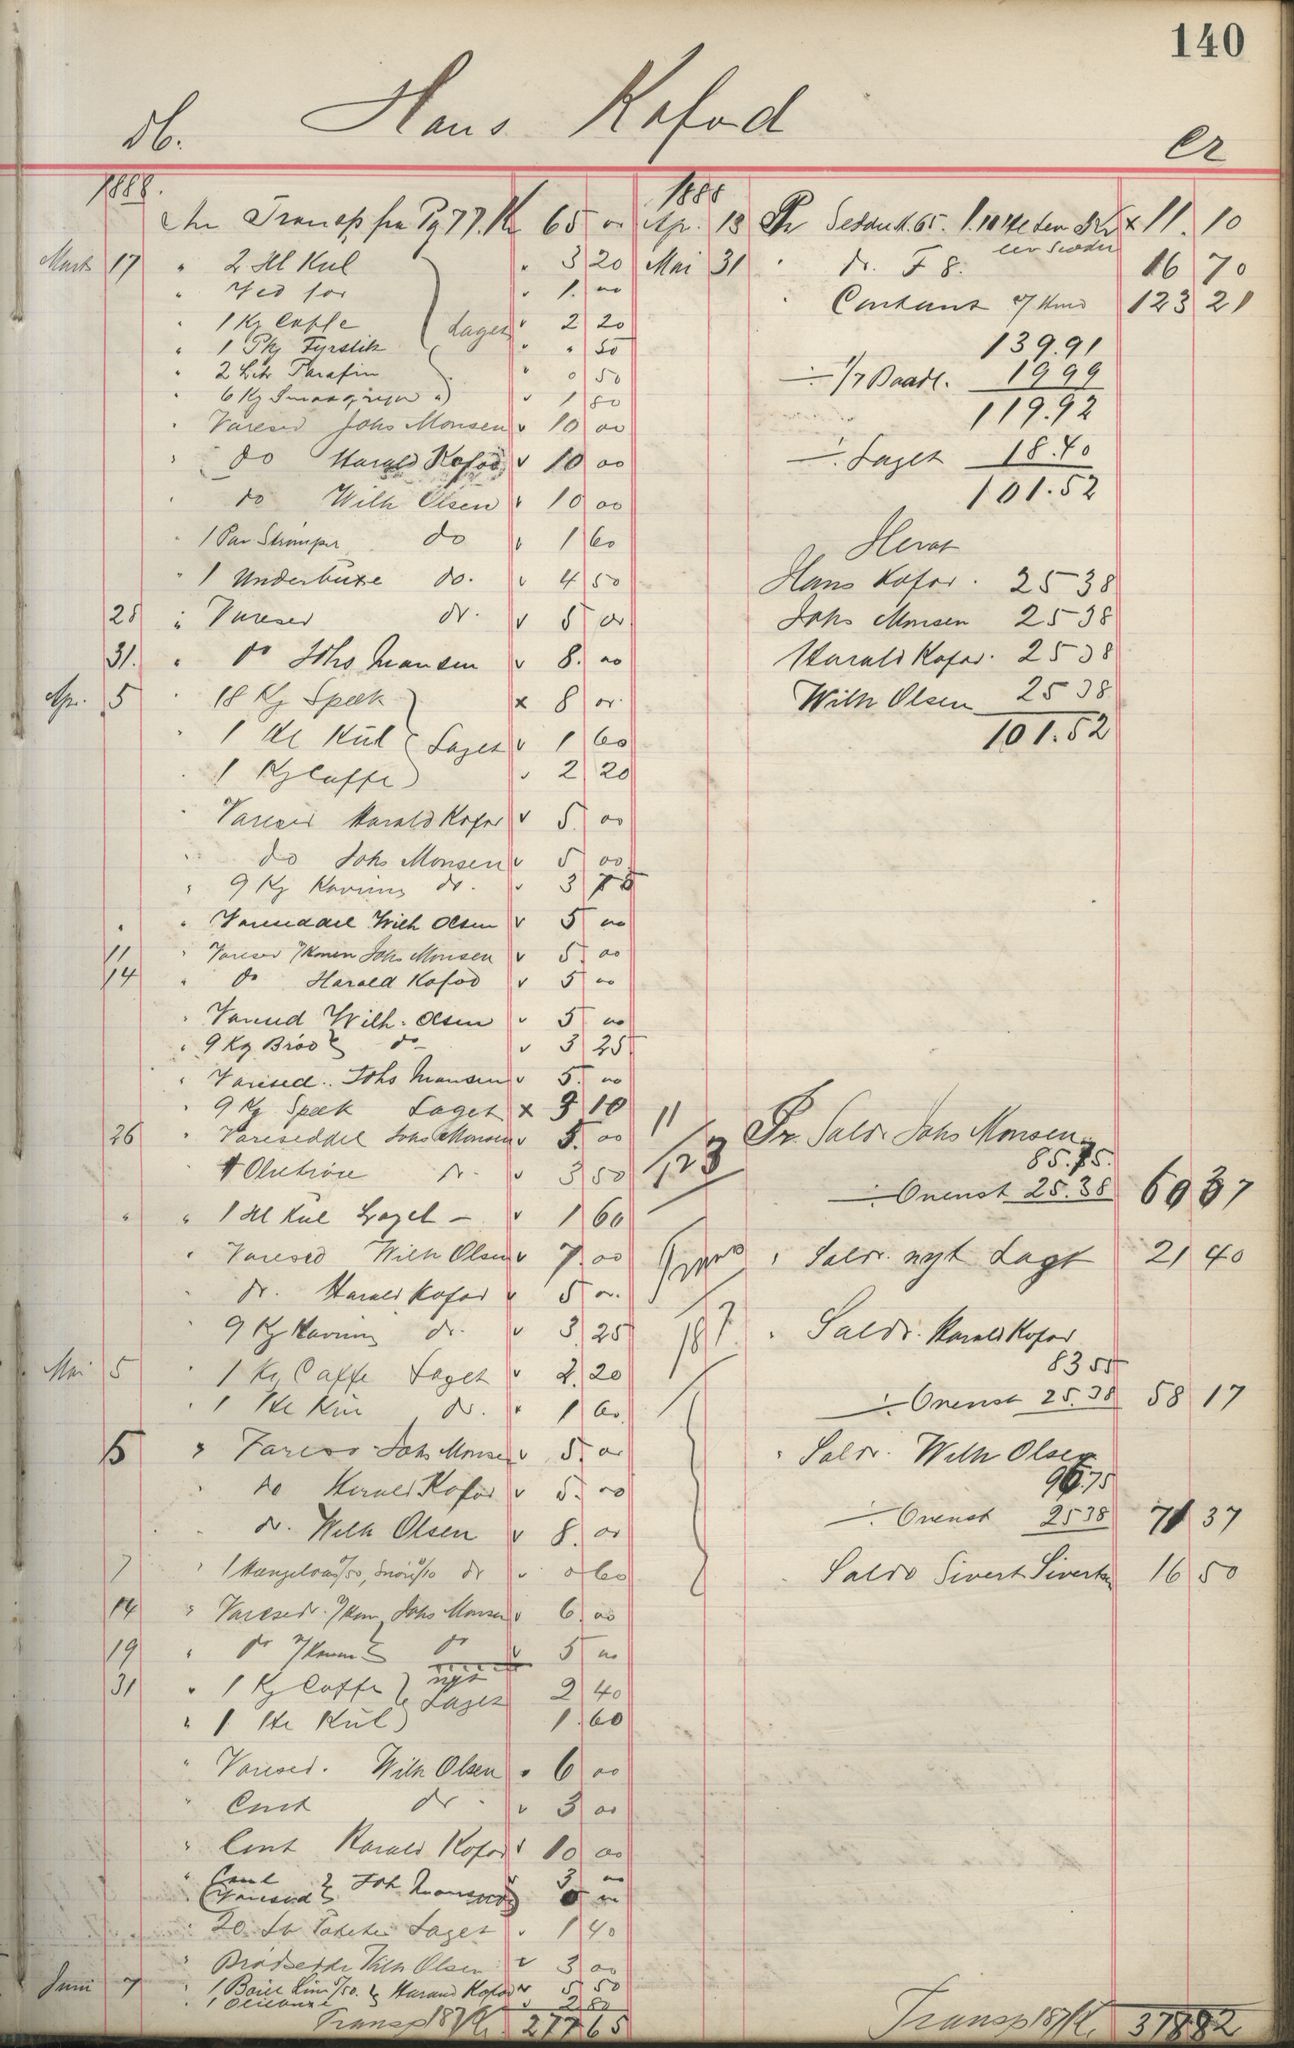 140
Hans Kofod
Db.
Cr
1888.
An Transp fra Pg 77. Kr 65 00
Marts 17 " 2 Hl Kul " 3 20
" Ved for " 1. 00
" 1 Kg Caffe Laget v 2 20
" 1 Pk Fyrstik " " 50
" 2 Litr Parafin " 0 50
" 6 Kg v 1 80
" Varesed Johs Monsen v 10 00
" do Harald Kofod v 10 00
" do Wilh Olsen v 10 00
" 1 Par Strømper do v 1 60
" 1 Underbuxe do. v 4 50
28 " Varesed do. v 5 00
31. " do Johs Monsen v 8. 00
Apr. 5 " 18 Kg Speck x 8 00
" 1 Hl Kul Laget v 1 60
" 1 Kg Caffe v 2 20
" Varesed Harald Kofod v 5 00
" do Johs Monsen v 5 00
" 9 Kg Kavring do. v 3 75
" " Vareseddel Wilh Olsen v 5 00
11 " Varesed Johs Monsen v 5. 00
14 " do Harald Kofod v 5 00
" Varesed Wilh. Olsen v 5 00
" 9 Kg Brød do v 3 25
" Varesed.. Johs Monsen v 5. 00
" 9 Kg Speck Laget x 3 10
26 " Vareseddel Johs Monsen v 5. 00
" 1 do. v 3 50
" " 1 Hl Kul Laget - v 1 60
" Varesed Wilh Olsen v 7. 00
" do. Harald Kofod v 5 00
" 9 Kg Kavring do. v 3. 25
Mai 5 " 1 Kg Caffe Laget v 2. 20
" 1 Hl Kul do. " 1 60
5 " Varesed Johs Monsen v 5. 00
" do Harald Kofod v 5. 00
" do. Wilh Olsen v 8. 00
7 " 1 do v 0 60
14 " Varesed. Johs Monsen v 6. 00
19 " do do v 5 00
31 " 1 Kg Caffe nyt Laget 2 40
" 1 Hl Kul 1. 60
" Varesed. Wilh Olsen " 6 00
" Cont do v 3 00
" Cont Harald Kofod v 10 00
" Cont Joh Monsen v 3 00
(Varesed)
" 20 Laget v 1 40
" Brødseddel Wilh Olsen v 3 00
Juni 7 " 1 Harald Kofod v 5 50
" 1 Oliebuxe v 2 80
Transp 187 Kr. 277 65
1888
Apr. 13 Pr x 11. 10
Mai 31 " do. F 8. 16 70
" Contant 123 21
139.91
÷ 1/7 Baadl. 19 99
119.92
÷ Laget 18.40
101.52
Heraf
Hans Kofod. 25 38
Johs Monsen 25 38
Harald Kofod. 25 38
Wilh Olsen 25 38
101.52
11/123
Pr. Saldo Johs Monsen
85.75.
÷ Ovenst 25.38 60 37
Transp
" Saldo. nyt Lagt 21 40
187
" Saldo. Harald Kofod
83 55
÷ Ovenst 25.38 58 17
" Saldo. Wilh Olsen
96.75
÷ Ovenst 25 38 71 37
" Saldo Sivert Sivertsen 16 50
Transp 187 Kr. 378 82